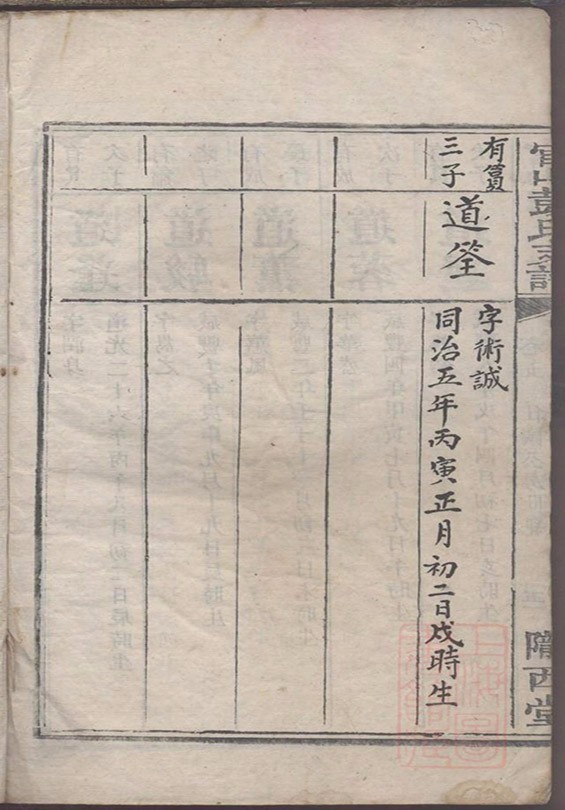 官山彭氏支譜
隴西堂
有簣
三子
道筌
字術誠
同治五年丙寅正月初二日戌時生